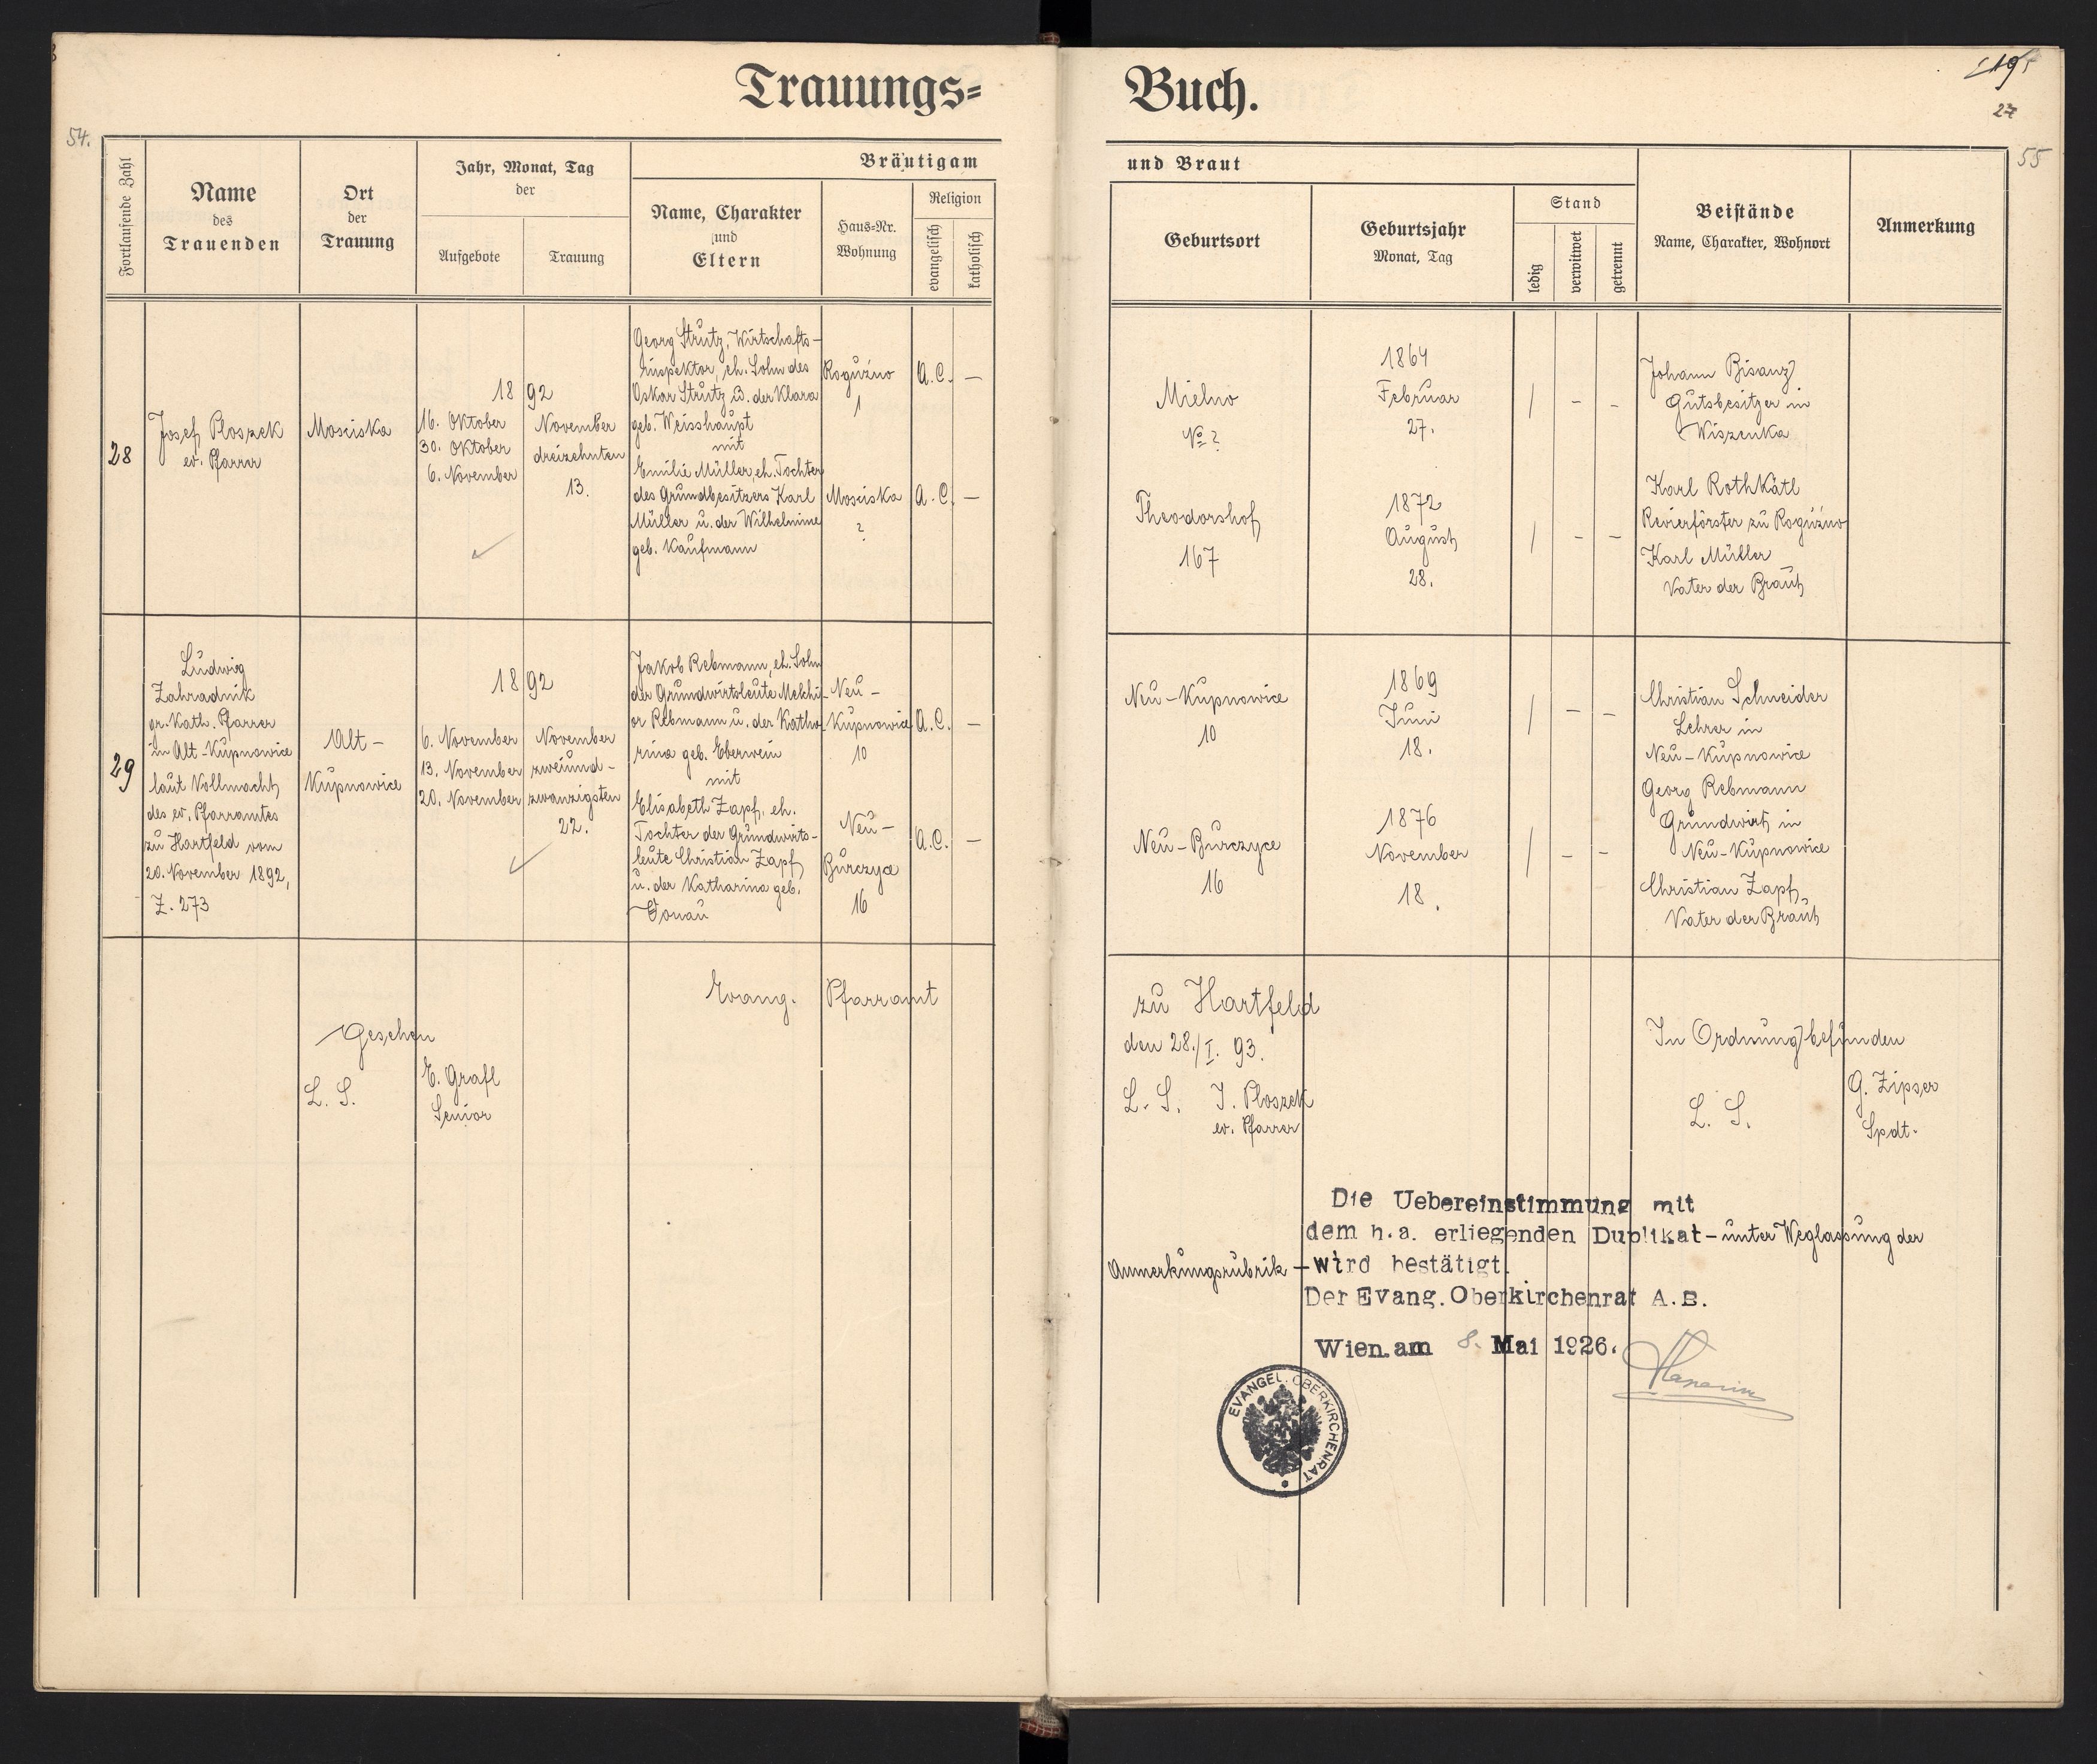 Trauungs=
Buch.
19
27
54.
55
Fortlaufende Zahl
Name
des
Trauenden
Ort
der
Trauung
Jahr, Monat, Tag
der
Aufgebote
Trauung
Bräutigam
Name, Charakter
und
Eltern
Haus=Nr.
Wohnung
Religion
evangelisch
katholisch
und Braut
Geburtsort
Geburtsjahr
Monat, Tag
Stand
ledig
verwitwet
getrennt
Beistände
Name, Charakter, Wohnort
Anmerkung
28
Josef Ploszek
ev. Pfarrer
Mosciska
1892
16. Oktober
30. Oktober
6. November
November
dreizehnten
13.
Georg Strutz, Wirtschafts-
inspektor, eh. Sohn des
Oskar Strutz u. der Klara
geb. Weisshaupt
mit
Emilie Müller, eh. Tochter
des Grundbesitzers Karl
Müller u. der Wilhelmine
geb. Kaufmann
Roguźno
1
A.C. —
Mosciska
?
A.C. —
Mielno
No ?
1864
Februar
27.
/ - -
Theodorshof
167
1872
August
28.
/ - -
Johann Bisanz
Gutsbesitzer in
Wiszenka
Karl Rothkätl
Revierförster zu Roguźno
Karl Müller
Vater der Braut
29
Ludwig
Zahradnik
gr. Kath. Pfarrer
in Alt-Kupnowice
laut Vollmacht
des ev. Pfarramtes
zu Hartfeld vom
20. November 1892,
Z. 273
Alt-
Kupnowice
1892
6. November
13. November
20. November
November
zweiund-
zwanzigsten
22.
Jakob Rebmann, eh. Sohn
der Grundwirtsleute Melchi-
or Rebmann u. der Katha-
rina geb. Eberwein
mit
Elisabeth Zapf, eh.
Tochter der Grundwirts-
leute Christian Zapf
u. der Katharina geb.
Donau
Neu-
Kupnowice
10
A.C. —
Neu-
Burczyce
16
A.C. —
Neu-Kupnowice
10
1869
Juni
18.
/ - -
Neu-Burczyce
16
1876
November
18.
/ - -
Christian Schneider
Lehrer in
Neu-Kupnowice
Georg Rebmann
Grundwirt in
Neu-Kupnowice
Christian Zapf,
Vater der Braut
Evang. Pfarramt
zu Hartfeld
den 28./I. 93.
L. S. J. Ploszek
ev. Pfarrer
Gesehen
L. S.
E. Grafl
Senior
In Ordnung befunden
L. S.
G. Zipser
Spdt.
Die Uebereinstimmung mit
dem h.a. erliegenden Duplikat - unter Weglassung der
Anmerkungsrubrik - wird bestätigt.
Der Evang. Oberkirchenrat A.B.
Wien. am 8. Mai 1926.
EVANGEL. OBERKIRCHENRAT